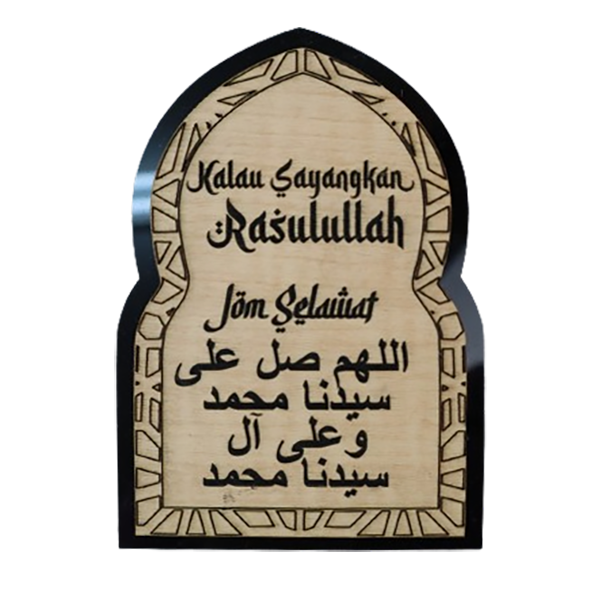 Kalau Sayangkan
Rasulullah
Jom Selawat
اللهم صل على
سيدنا محمد
وعلى آل
سيدنا محمد